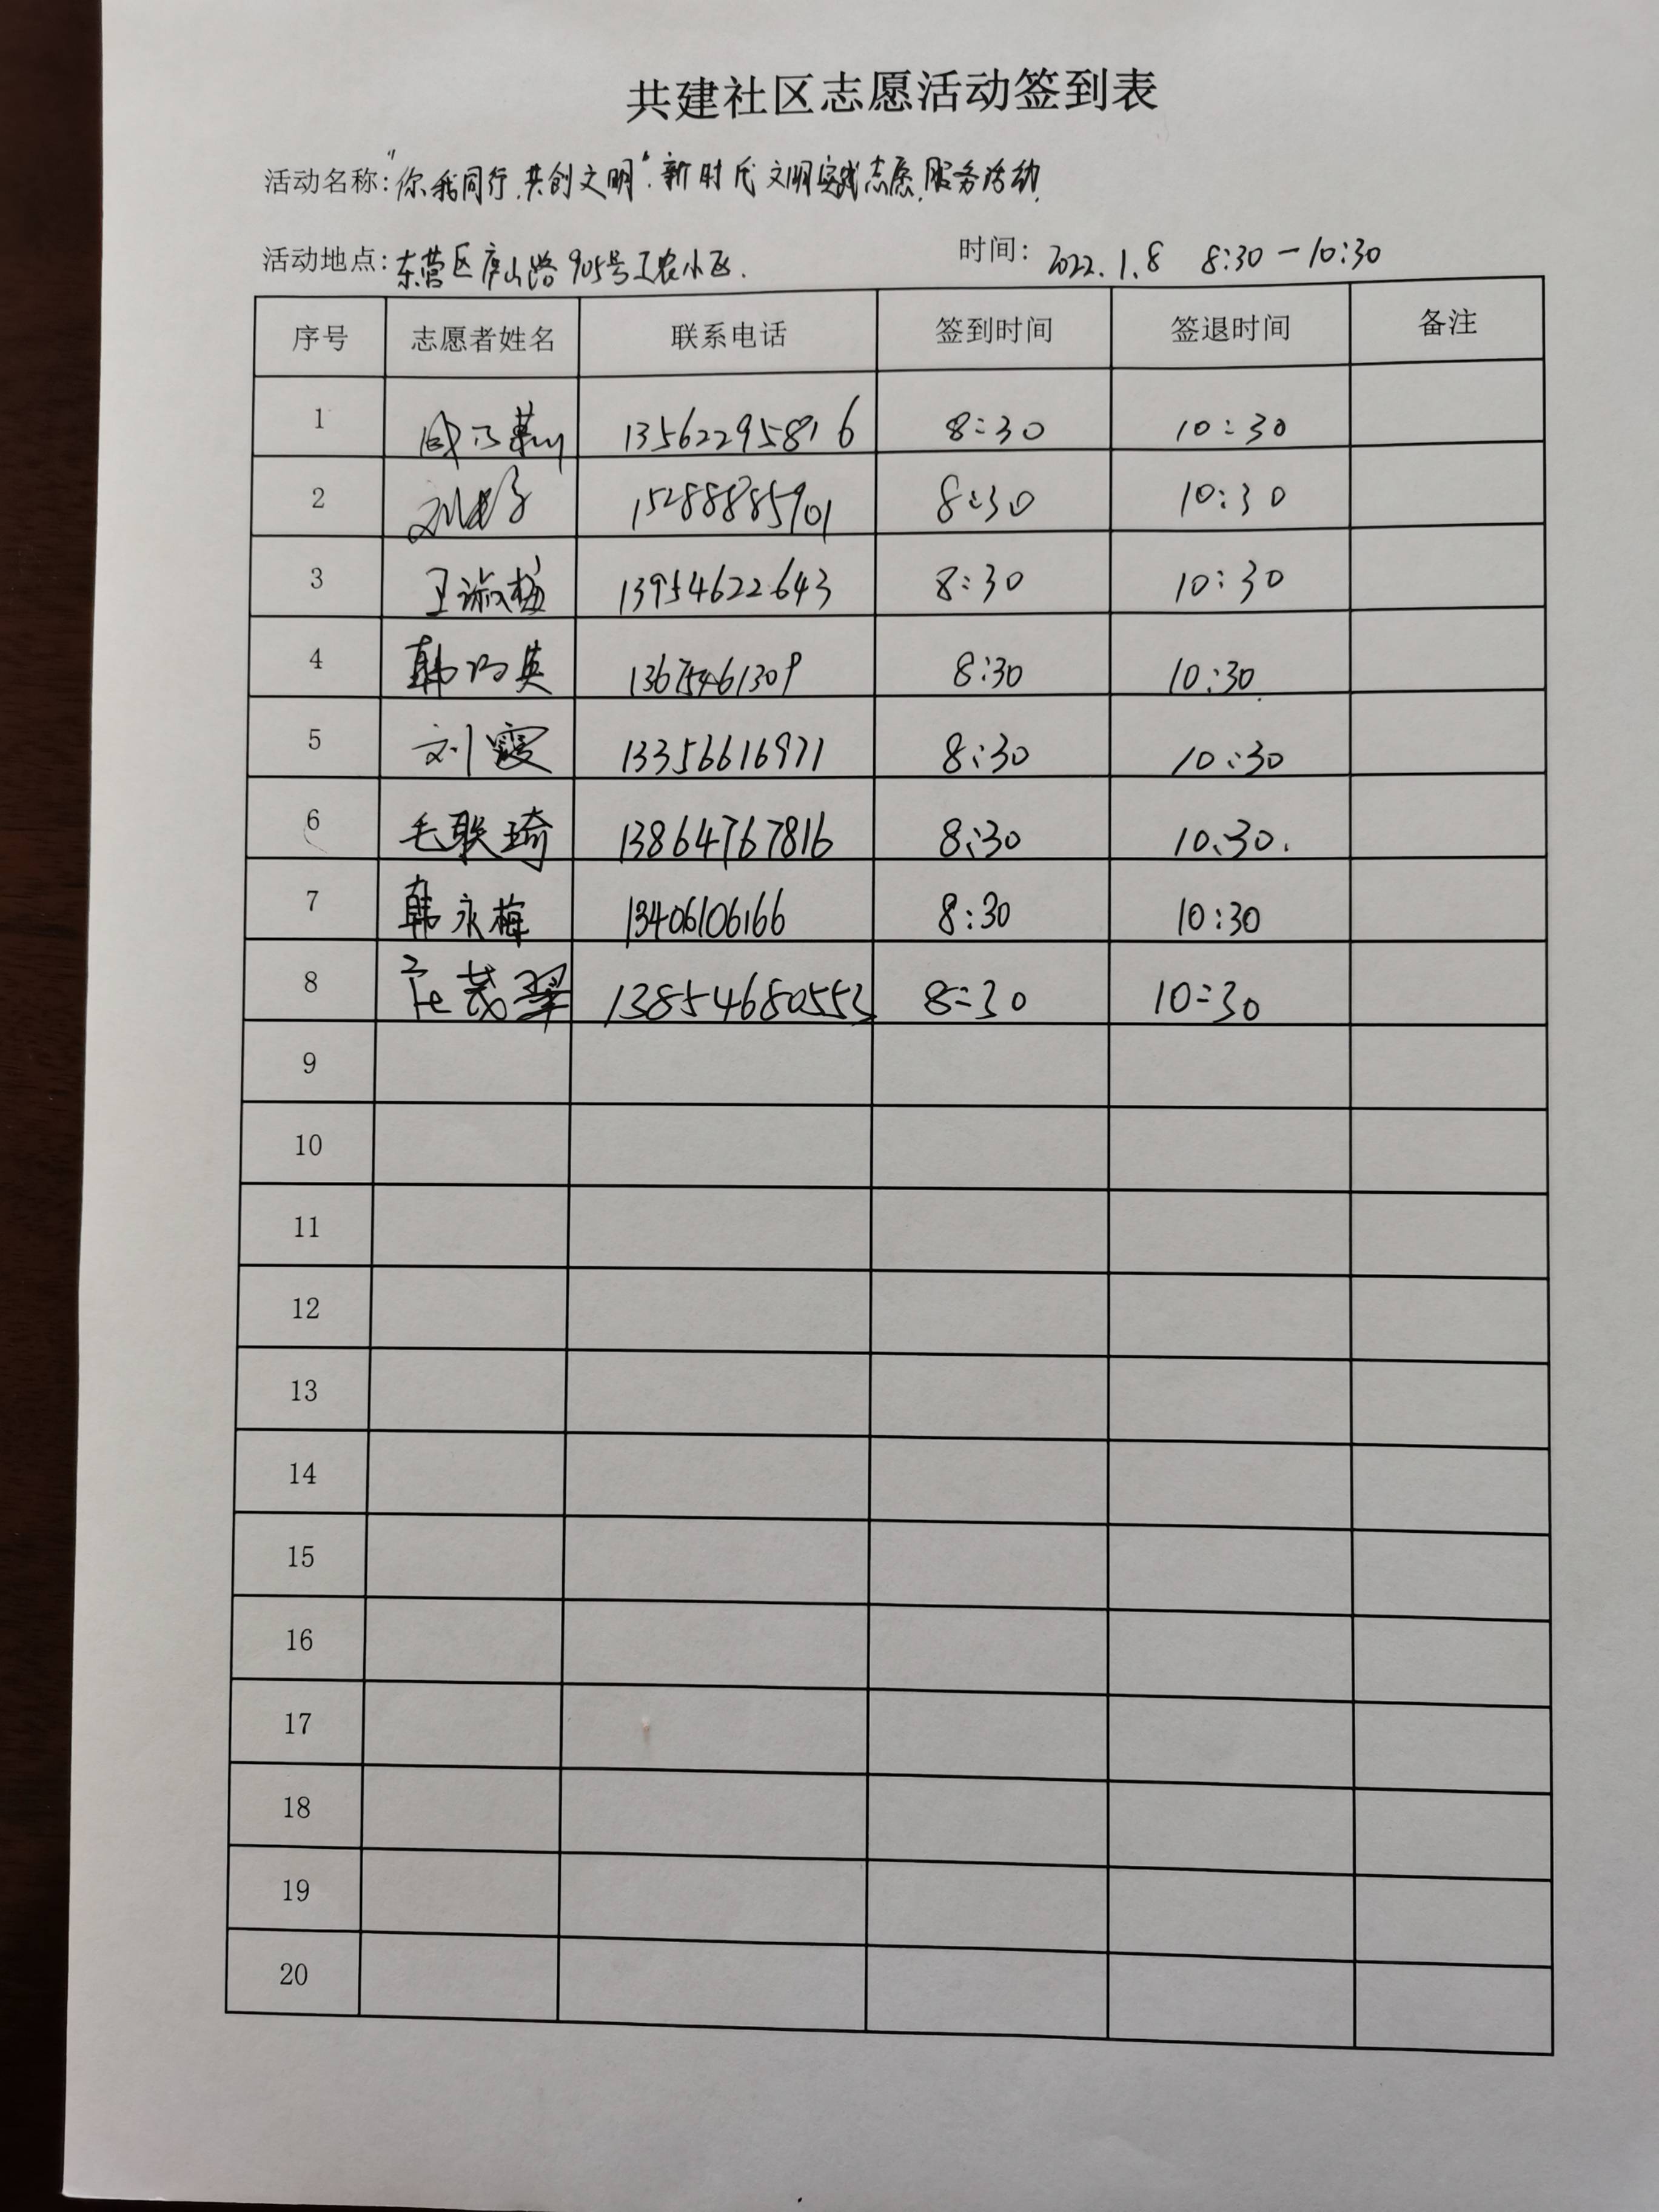 共建社区志愿活动签到表
活动名称:"你我同行.共创文明".新时代文明实践志愿服务活动.
活动地点:东营区庐山路905号工农小区. 时间: 2022.1.8 8:30-10:30
序号 志愿者姓名 联系电话 签到时间 签退时间 备注
1 13562295816 8:30 10:30
2 15288885901 8:30 10:30
3 王淑梅 13954622643 8:30 10:30
4 韩 英 13675461309 8:30 10:30
5 刘霞 13356616971 8:30 10:30
6 毛联琦 13864767816 8:30 10:30.
7 韩永梅 13406106166 8:30 10:30
8 茂翠 13854680553 8:30 10:30
9
10
11
12
13
14
15
16
17
18
19
20